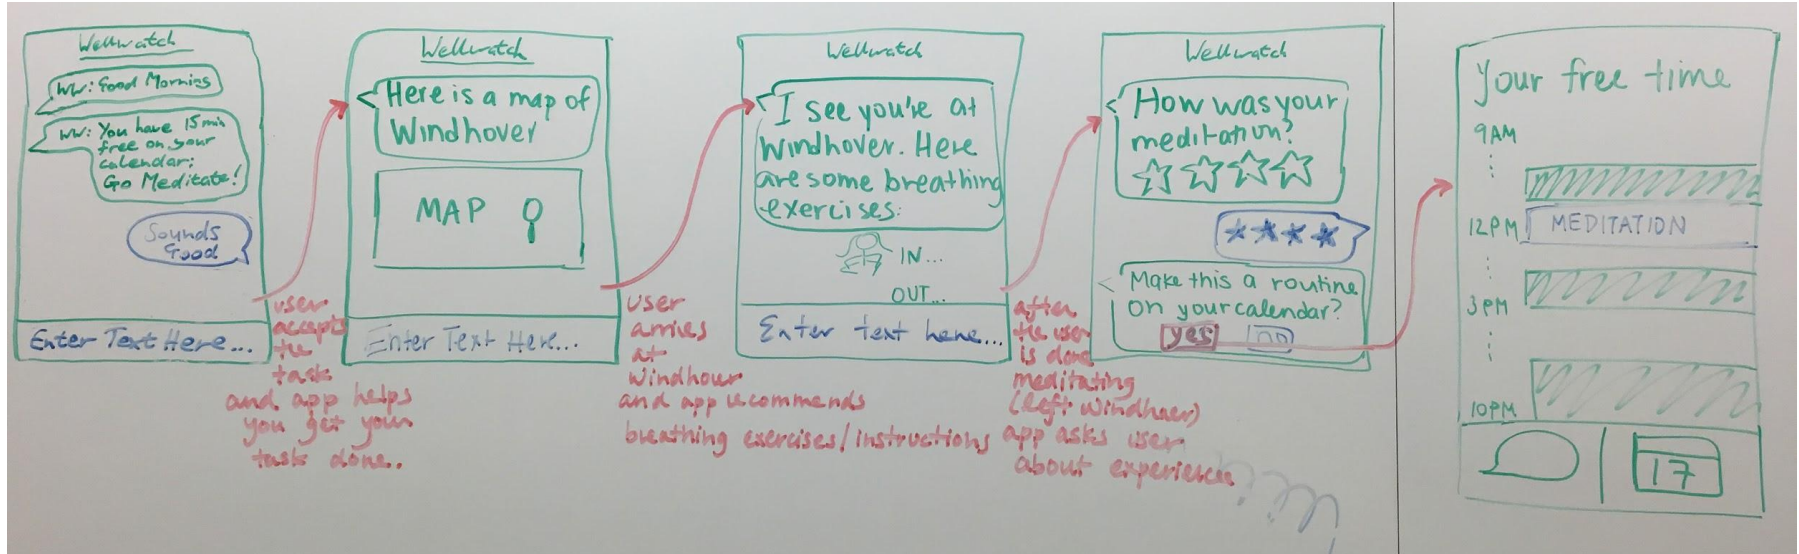 Wellwatch
WW: Good Morning
WW: You have 15 min
free on your
calendar:
Go Meditate!
Sounds
Good
Enter Text Here...
user
accepts
the
task
and app helps
you get your
task done..
Wellwatch
Here is a map of
Windhover
MAP
Enter Text Here...
user
arrives
at
windhour
and app recommends
breathing exercises/instructions
Wellwatch
I see you're at
windhover. Here
are some breathing
exercises:
IN...
OUT...
Enter text here...
after
the user
is done
meditating
(left windhover)
app asks user
about experience
Wellwatch
How was your
meditation?
Make this a routine
on your calendar?
yes no
Your free time
9AM
12PM MEDITATION
3PM
10PM
17